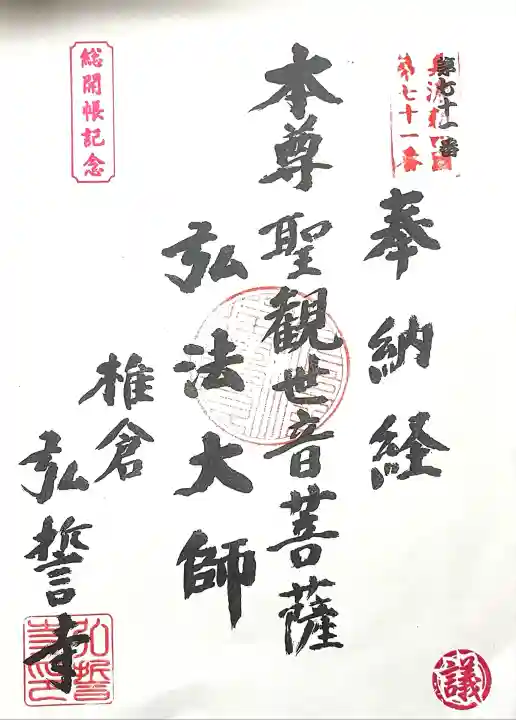 第七十一番
第七十一番
奉納経
本尊聖観世音菩薩
弘法大師
椎倉
弘誓寺
総開帳記念
議